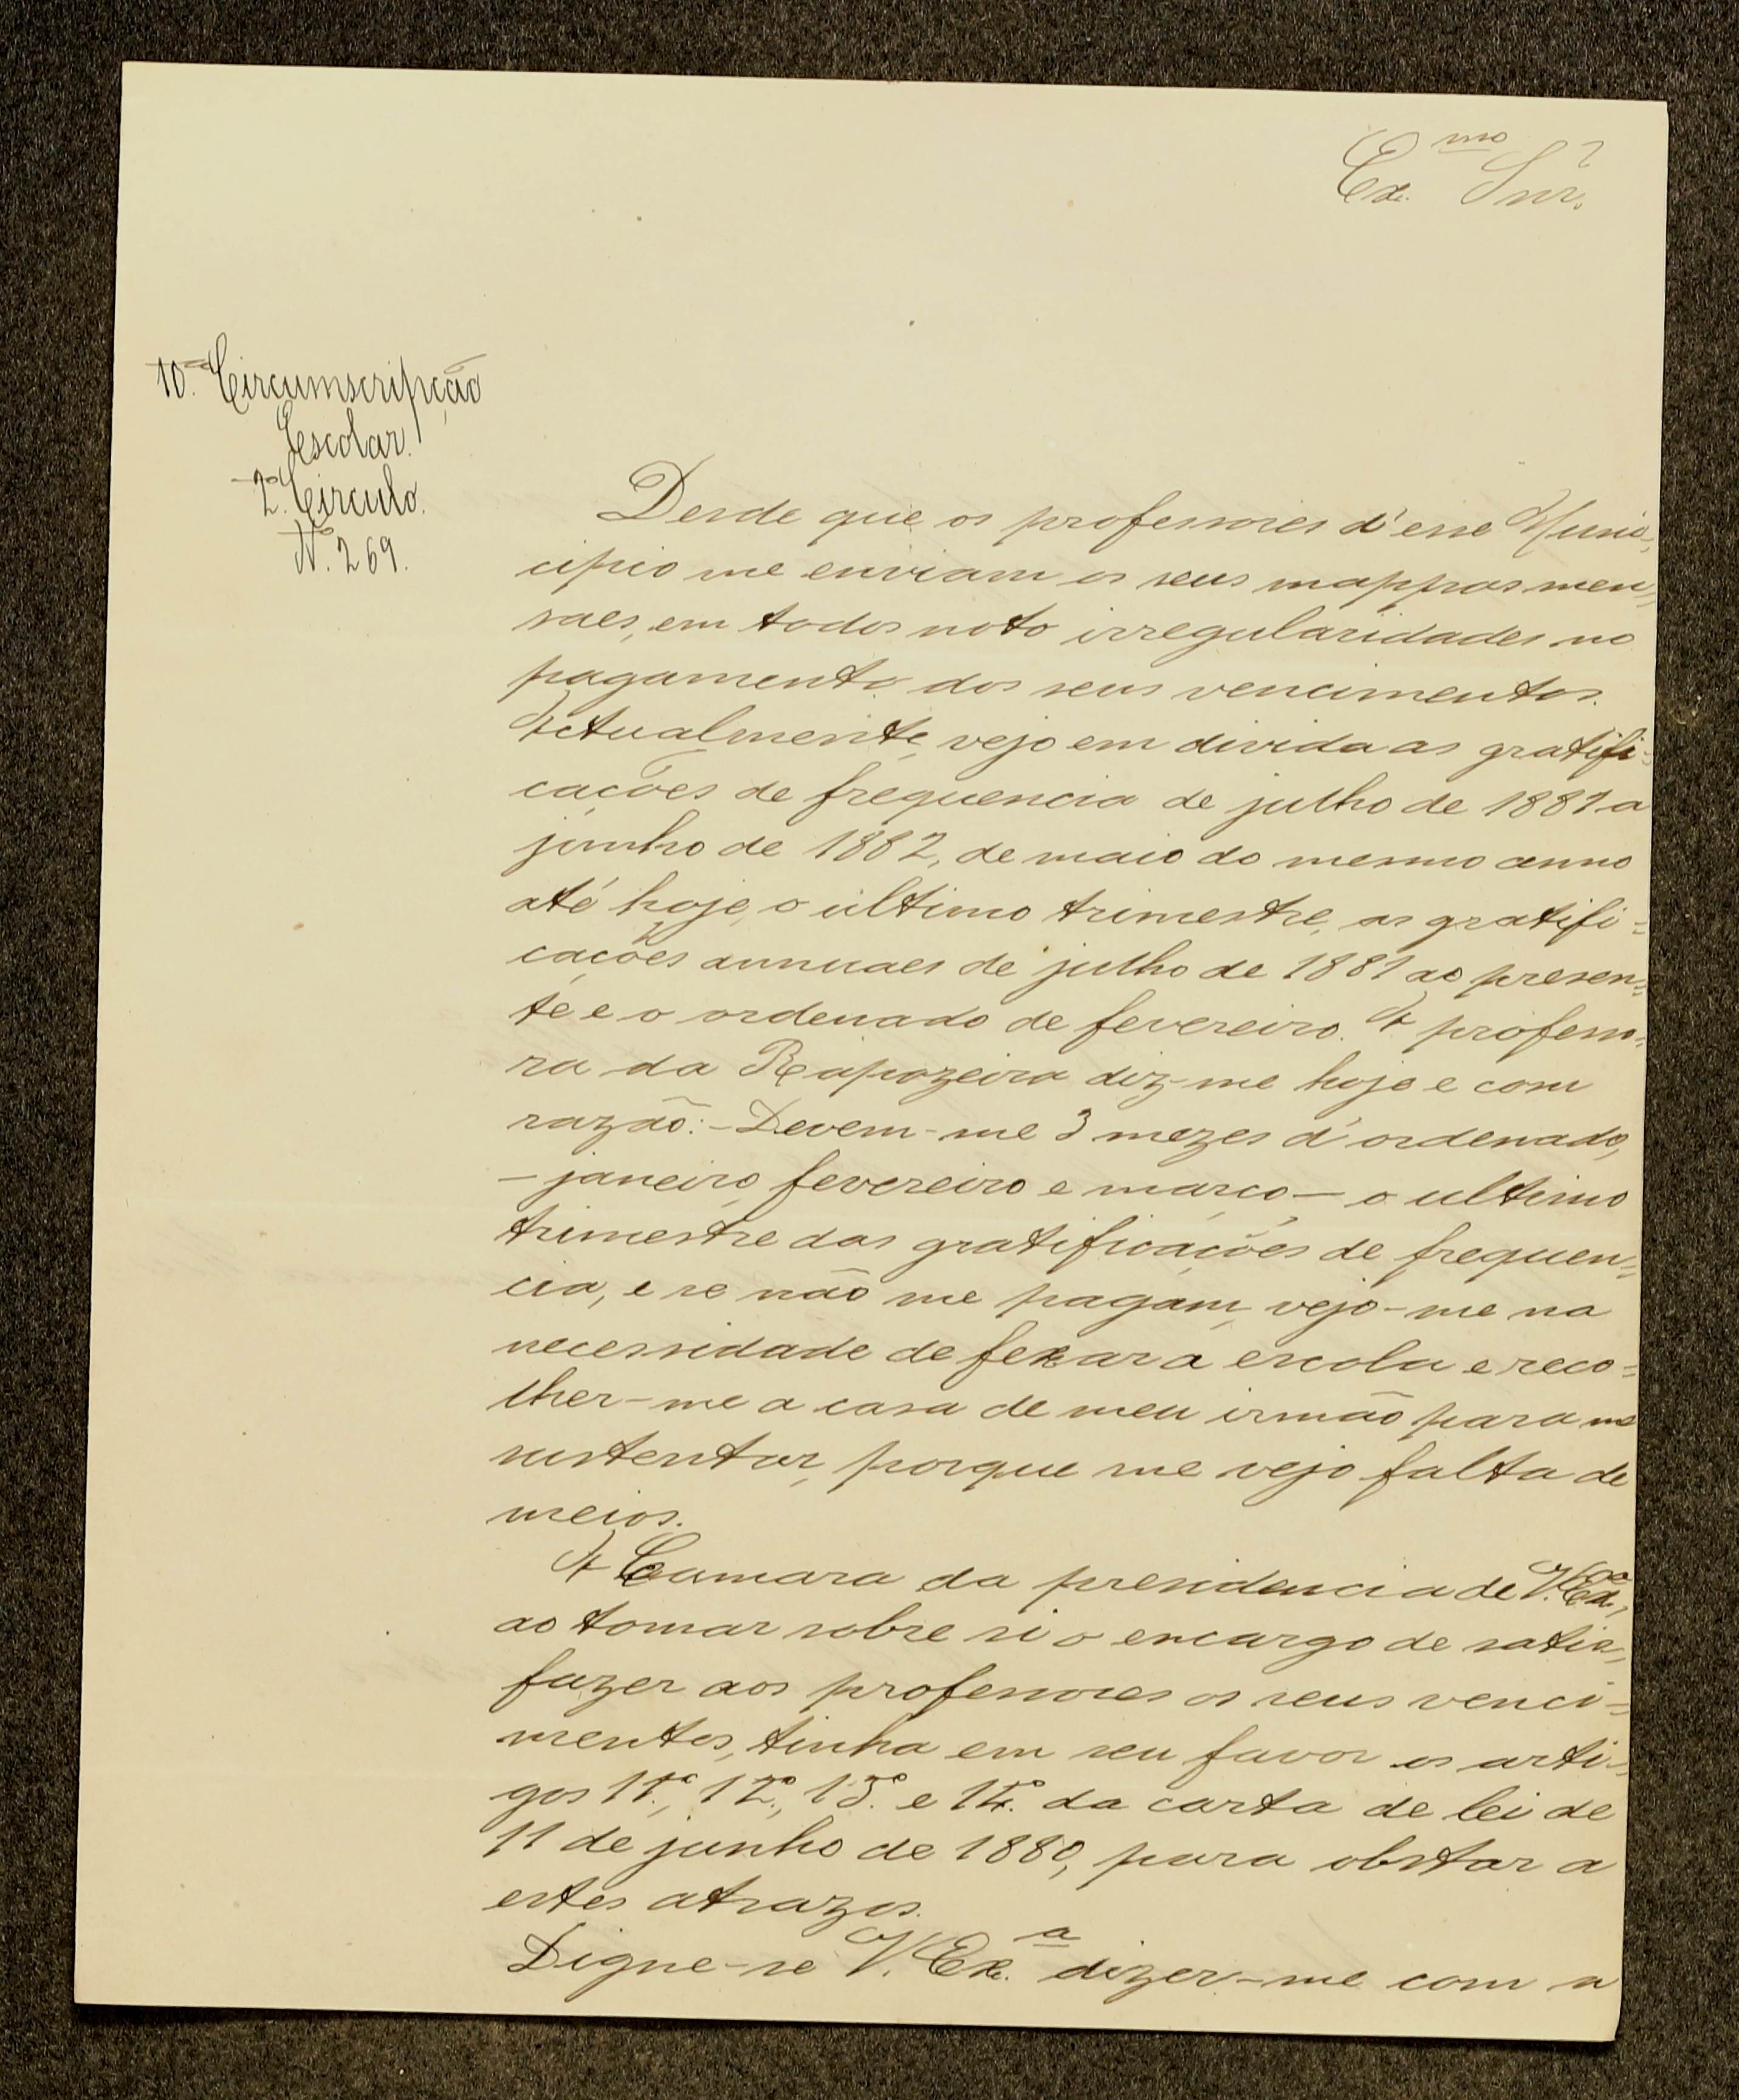 Ex.mo Snr.
10.a Circumscripção
Escolar.
2.o Circulo.
N.o 269.
Desde que os professores d'esse Muni-
cipio me enviam os seus mappas men-
saes, em todos noto irregularidades no
pagamento dos seus vencimentos.
Actualmente vejo em divida as gratifi-
cações de frequencia de julho de 1881 a
junho de 1882, de maio do mesmo anno
até hoje, o ultimo trimestre, as gratifi-
cações annuaes de julho de 1881 ao presen-
te e o ordenado de fevereiro. A professo-
ra da Rapozeira diz-me hoje e com
razão: - Devem-me 3 mezes d'ordenado,
- janeiro, fevereiro e março - o ultimo
trimestre das gratificações de frequen-
cia, e se não me pagam, vejo-me na
necessidade de fexar a escola e reco-
lher-me a casa de meu irmão para me
sustentar, porque me vejo falta de
meios.
A Camara da presidencia de V. Ex.a,
ao tomar sobre si o encargo de satis-
fazer aos professores os seus venci-
mentos, tinha em seu favor os arti-
gos 11.o, 12.o, 13.o e 14.o da carta de lei de
11 de junho de 1880, para obstar a
estes atrazos.
Digne-se V. Ex.a dizer-me com a